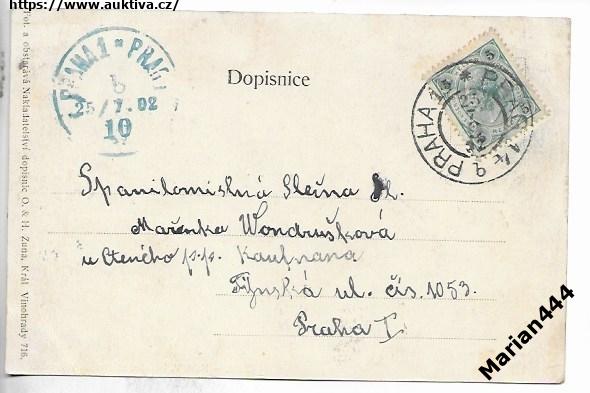 https://www.auktiva.cz/
Fot. a obstarává Nakladatelství dopisnic O. & H. Zuna, Král. Vinohrady 716.
PRAHA 1 PRAG 1
25/7.02
10
Dopisnice
PRAHA 1 PRAG 1
Spanilomislná Slečna Sl.
Mařenka Wondrušková
u Ctěného p.p. Kaufmana
Týnská ul. čís. 1053.
Praha I.
Marian444